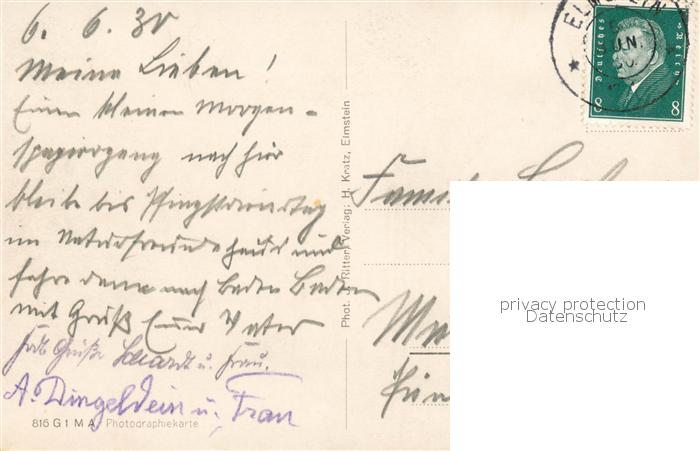 6. 6. 30
Meine Lieben!
Einen kleinen Morgen-
spaziergang nach hier
bleibe bis Pfingstdienstag
im Naturfreundehaus und
fahre dann nach Baden Baden
mit Gruß Euer Vater
Grüße u. Frau.
A. Dingeldein u. Frau
816 G 1 M A Photographiekarte
Phot. (Ritter) Verlag: H. Kratz, Elmstein
ELMSTEIN
JUN.
30.
Deutsches Reich
8 8
Famil
Ma
privacy protection
Datenschutz